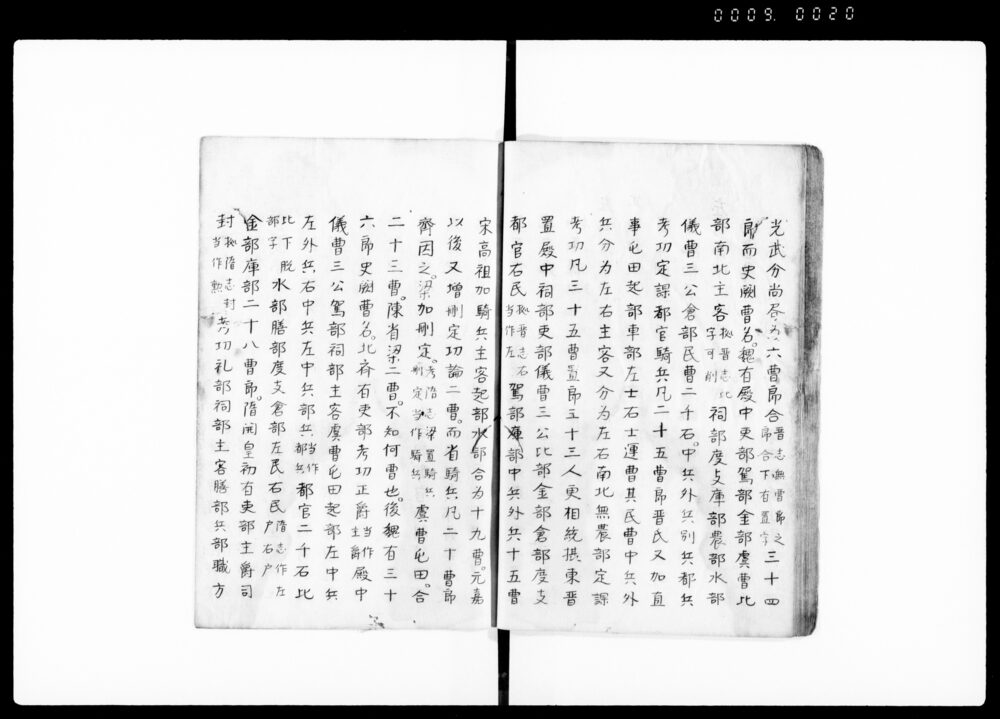 0009. 0020
光武分尚居为六曹郎合晋志無曹郎之郎合下有置字三十四
郎而史闕曹名。魏有殿中吏部駕部金部虞曹比
部南北主客按晋志北字可削祠部度支庫部農部水部
儀曹三公倉部民曹二千石。中兵外兵別兵都兵
考功定課都官騎兵凡二十五曹郎晋氏又加直
事屯田起部車部左士右士運曹其民曹中兵外
兵分为左右主客又分为左右南北無農部定課
考功凡三十五曹置郎五十三人更相統摂東晋
置殿中祠部吏部儀曹三公比部金部倉部度支
都官右民按晋志右当作左駕部庫部中兵外兵十五曹
宋高祖加騎兵主客起部水部合为十九曹。元嘉
以後又增刪定功論二曹。而省騎兵凡二十曹郎
齊因之。梁加刪定。考隋志梁置騎兵刪定当作騎兵虞曹屯田。合
二十三曹。陳省梁二曹。不知何曹也。後魏有三十
六郎史闕曹名。北斉有吏部考功正爵当作主爵殿中
儀曹三公駕部祠部主客虞曹屯田起部左中兵
左外兵右中兵左中兵部兵当作都兵都官二千石比
比下脱部字水部膳部度支倉部左民右民隋志作左户右户
金部庫部二十八曹郎。隋開皇初有吏部主爵司
封按隋志封当作勲考功礼部祠部主客膳部兵部職方